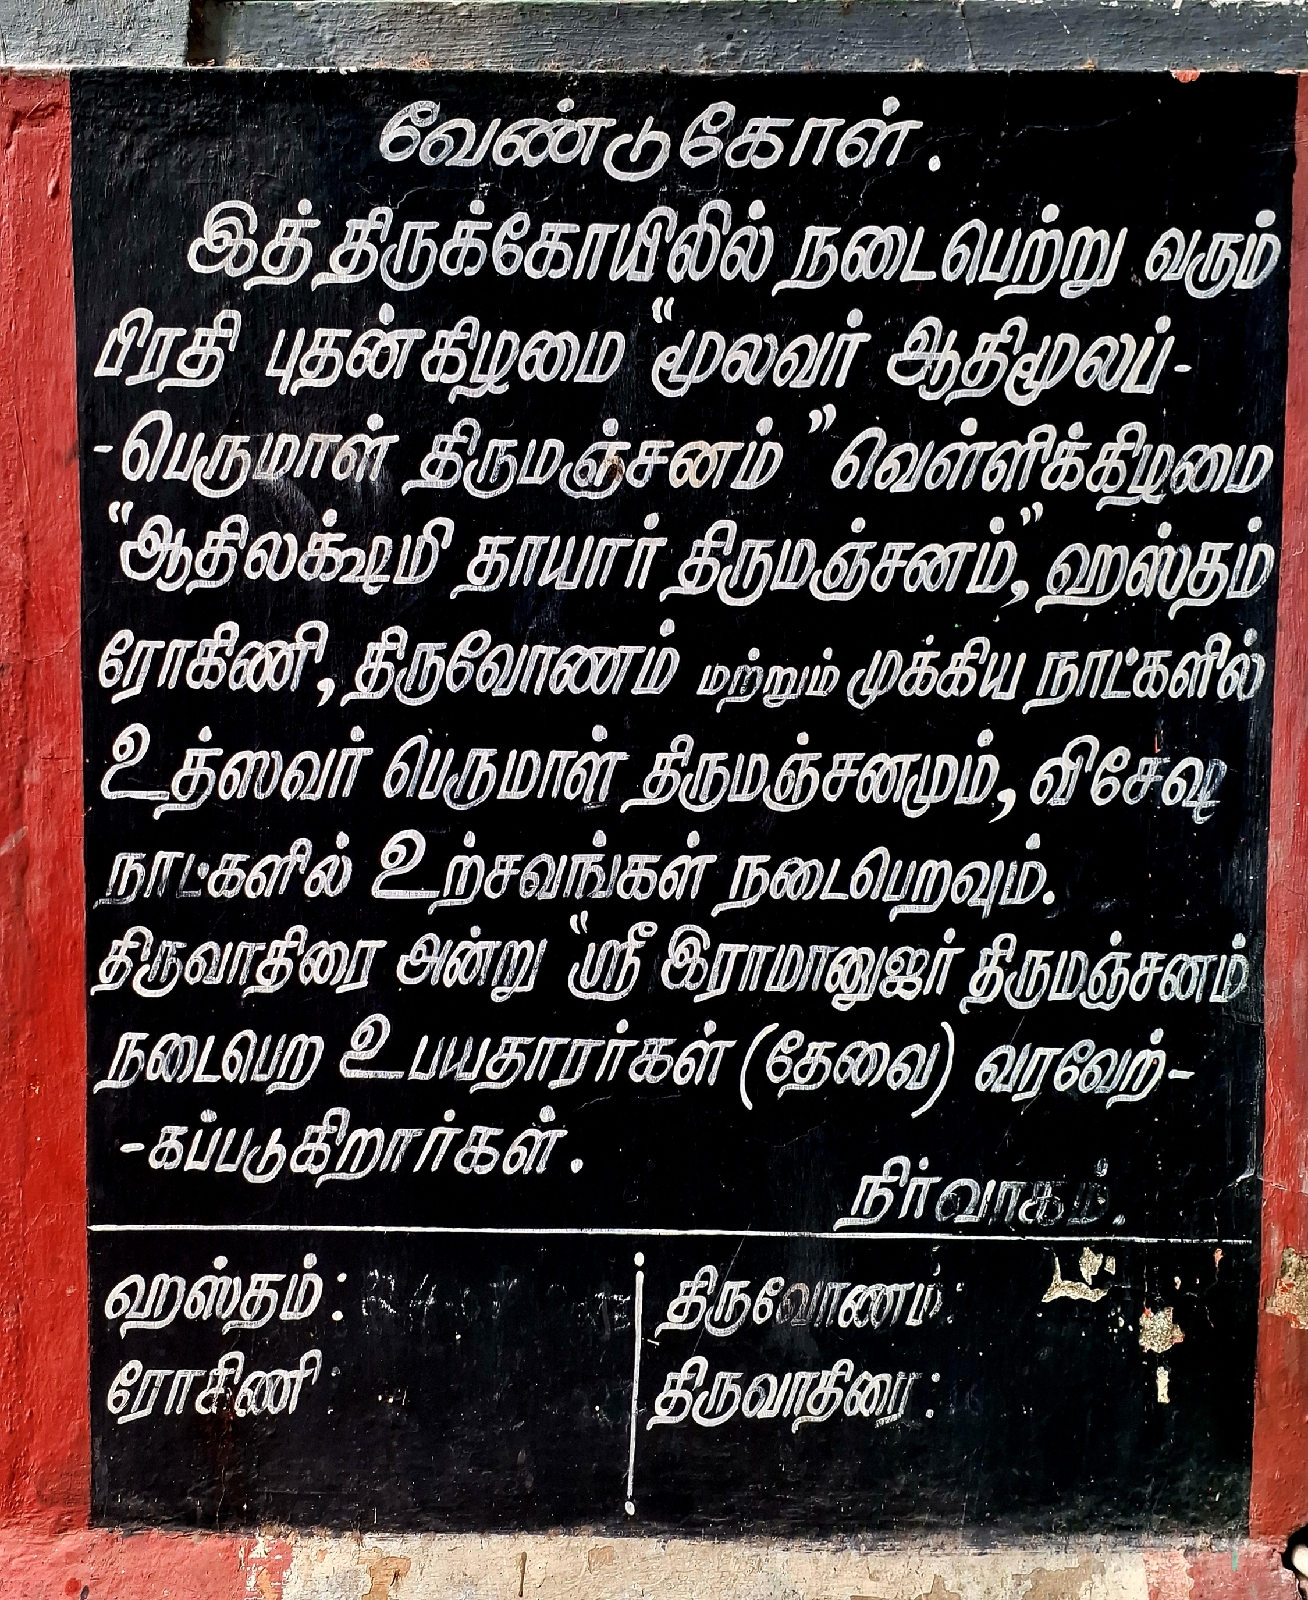 வேண்டுகோள்.
இத் திருக்கோயிலில் நடைபெற்று வரும்
பிரதி புதன்கிழமை "மூலவர் ஆதிமூலப்-
-பெருமாள் திருமஞ்சனம்" வெள்ளிக்கிழமை
"ஆதிலக்ஷ்மி தாயார் திருமஞ்சனம்," ஹஸ்தம்
ரோகிணி, திருவோணம் மற்றும் முக்கிய நாட்களில்
உத்ஸவர் பெருமாள் திருமஞ்சனமும், விசேஷ
நாட்களில் உற்சவங்கள் நடைபெறவும்.
திருவாதிரை அன்று "ஸ்ரீ இராமானுஜர் திருமஞ்சனம்
நடைபெற உபயதாரர்கள் (தேவை) வரவேற்-
-கப்படுகிறார்கள்.
நிர்வாகம்.
ஹஸ்தம் :
திருவோணம் :
ரோகிணி :
திருவாதிரை :